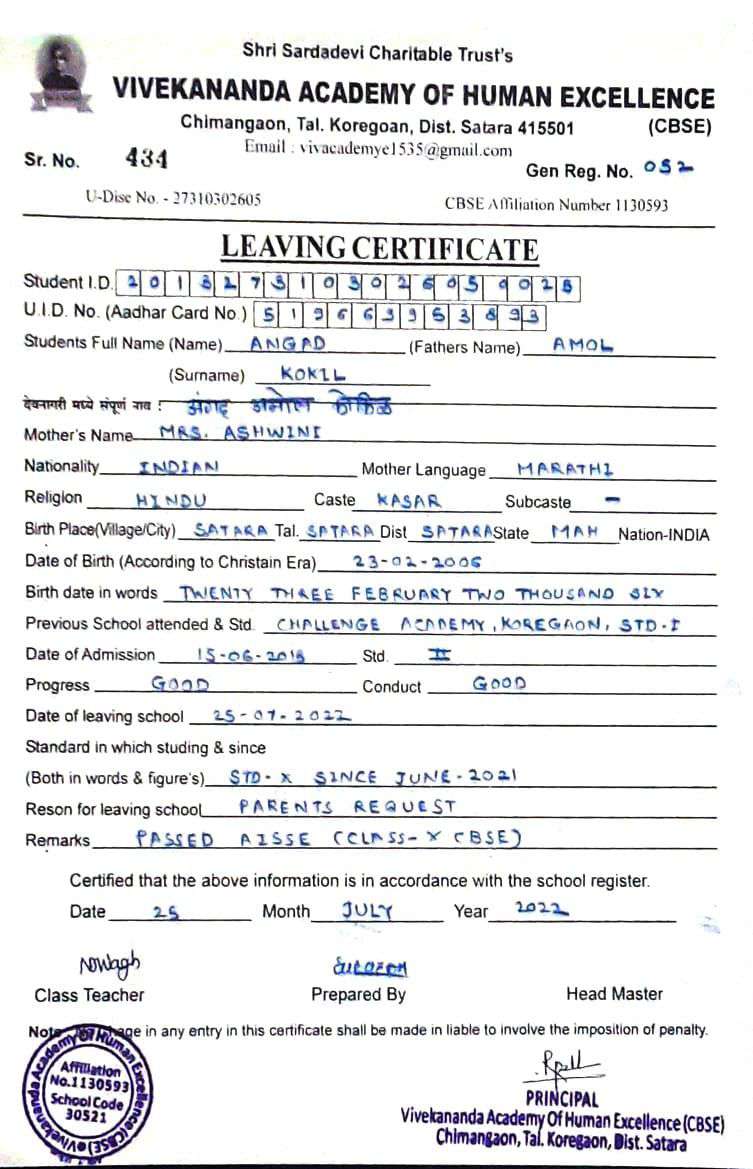 Shri Sardadevi Charitable Trust's
VIVEKANANDA ACADEMY OF HUMAN EXCELLENCE
Chimangaon, Tal. Koregoan, Dist. Satara 415501 (CBSE)
Email : vivacademye1535@gmail.com
Sr. No. 434 Gen Reg. No. 052
U-Disc No. - 27310302605 CBSE Affiliation Number 1130593
LEAVING CERTIFICATE
Student I.D. 2013273103026059028
U.I.D. No. (Aadhar Card No.) 519663953893
Students Full Name (Name) ANGAD (Fathers Name) AMOL
(Surname) KOKIL
देवनागरी मध्ये संपूर्ण नाव : अंगद अमोल कोकिळ
Mother's Name MRS. ASHWINI
Nationality INDIAN Mother Language MARATHI
Religion HINDU Caste KASAR Subcaste -
Birth Place(Village/City) SATARA Tal. SATARA Dist SATARA State MAH Nation-INDIA
Date of Birth (According to Christain Era) 23-02-2006
Birth date in words TWENTY THREE FEBRUARY TWO THOUSAND SIX
Previous School attended & Std. CHALLENGE ACADEMY, KOREGAON, STD-I
Date of Admission 15-06-2013 Std. II
Progress GOOD Conduct GOOD
Date of leaving school 25-07-2022
Standard in which studing & since
(Both in words & figure's) STD-X SINCE JUNE-2021
Reson for leaving school PARENTS REQUEST
Remarks PASSED AISSE (CLASS-X CBSE)
Certified that the above information is in accordance with the school register.
Date 25 Month JULY Year 2022
NDWagh
Class Teacher Prepared By Head Master
Note in any entry in this certificate shall be made in liable to involve the imposition of penalty.
Vivekananda Academy Of Human Excellence (CBSE)
Affiliation
No.1130593
School Code
30521
PRINCIPAL
Vivekananda Academy Of Human Excellence (CBSE)
Chimangaon, Tal. Koregaon, Dist. Satara